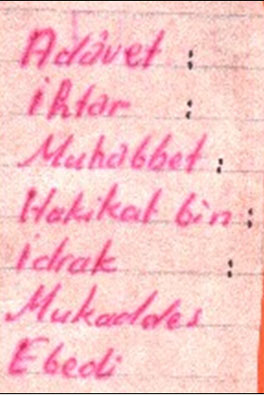 Adâvet :
ihtar :
Muhabbet :
Hakikat bin :
idrak :
Mukaddes
Ebedi